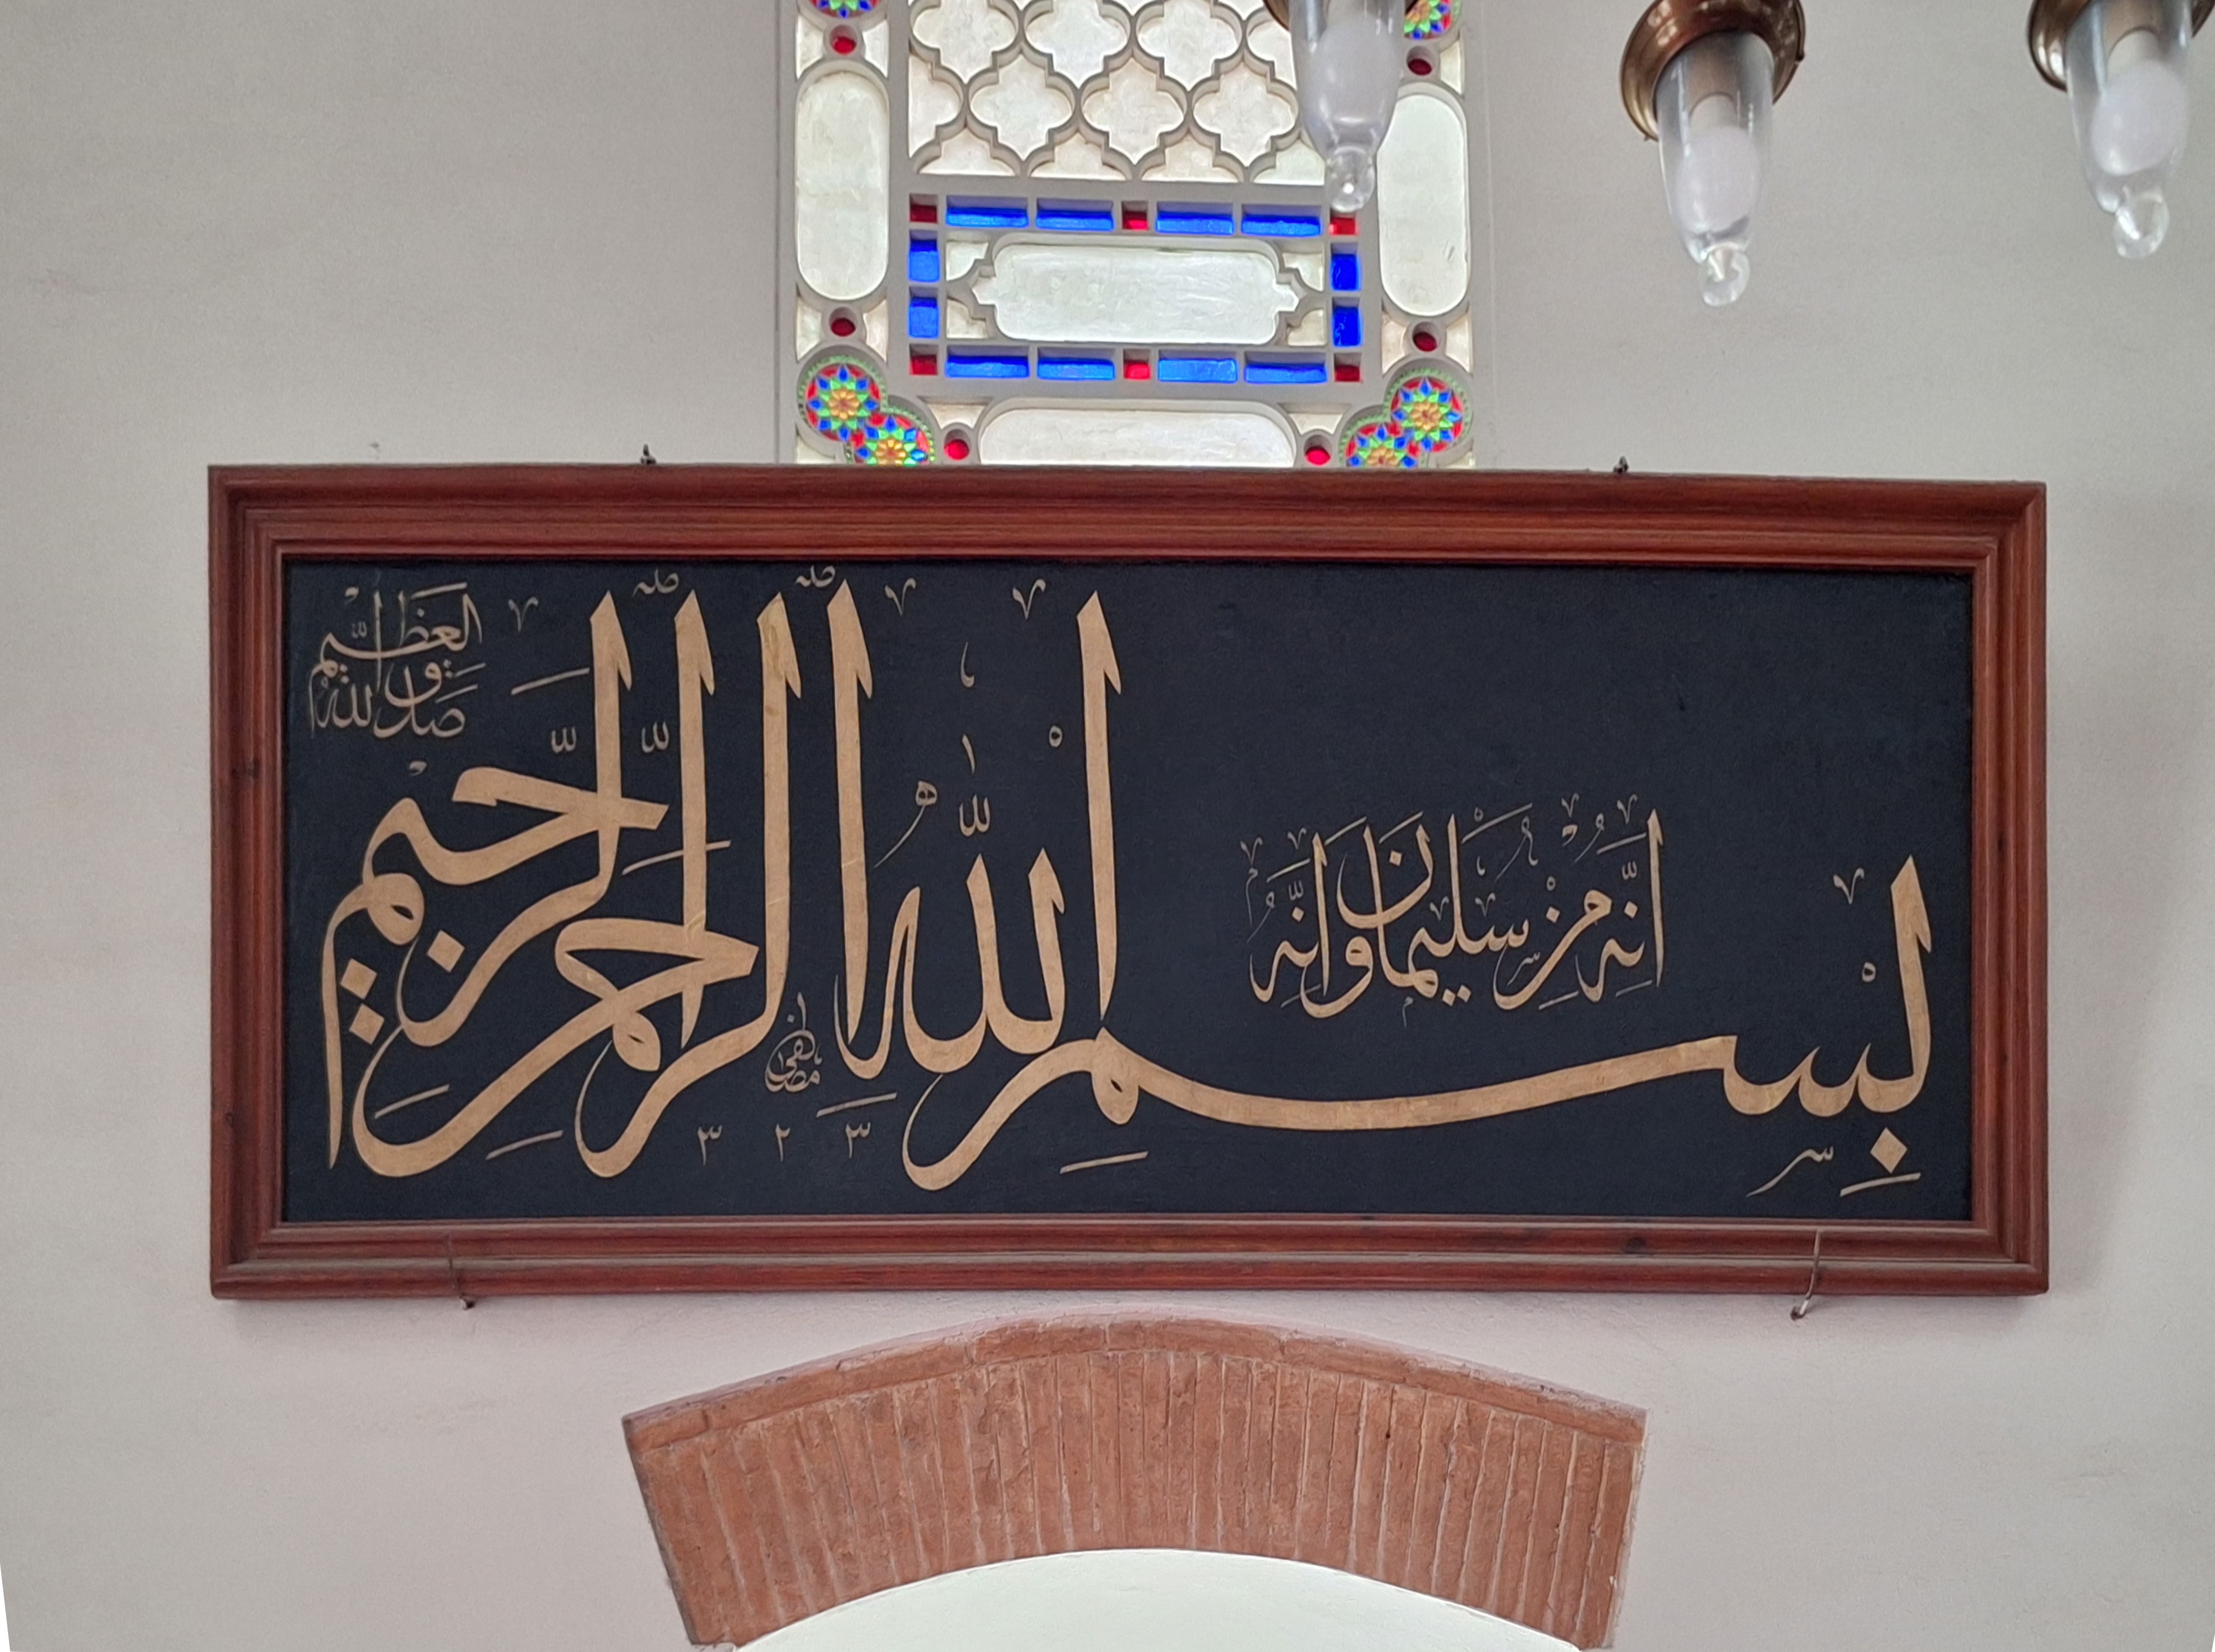 اِنَّهُ مِنْ سُلَيْمَانَ وَاِنَّهُ
بِسْمِ اللّٰهِ الرَّحْمٰنِ الرَّحِيمِ
صَدَقَ اللّٰهُ الْعَظِيمُ
مصطفى
٣٢٣